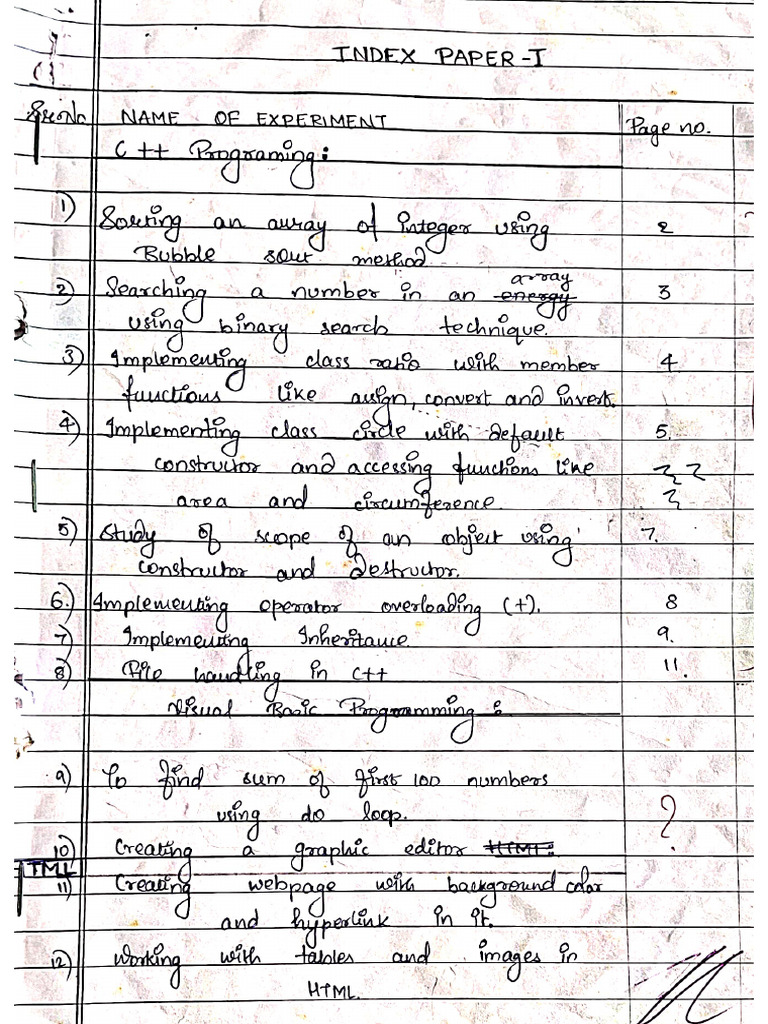 INDEX PAPER-I
Sr.No. NAME OF EXPERIMENT Page no.
C++ Programing:
1) Sorting an array of integer using 2
Bubble sort method
array
2) Searching a number in an energy 3
using binary search technique.
3) Implementing class ratio with member 4
functions like assign, convert and invert.
4) Implementing class circle with default 5.
constructor and accessing functions like
area and circumference.
5) Study of scope of an object using 7.
constructor and Destructor.
6.) Implementing operator overloading (+). 8
7) Implementing Inheritance. 9.
8) File handling in C++ 11.
Visual Basic Programming:
9) To find sum of first 100 numbers
using do loop. ?
10) Creating a graphic editor HTML:
HTML
11) Creating webpage with background color
and hyperlink in it.
12) Working with tables and images in
HTML.